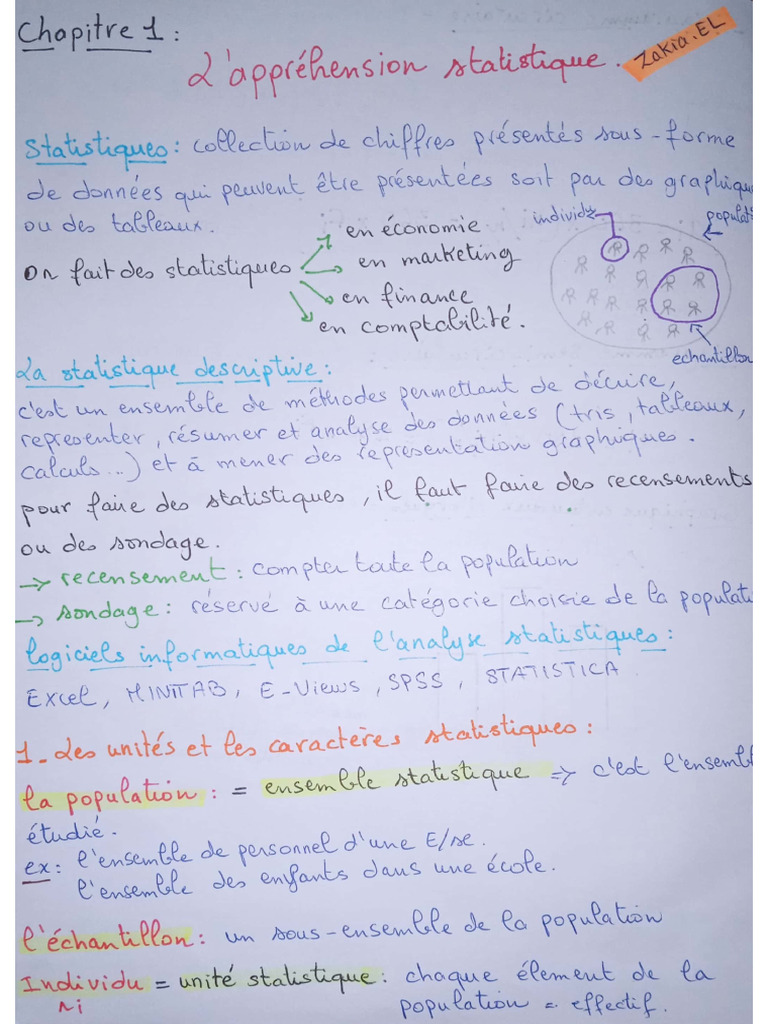 Chapitre 1 :
L'appréhension statistique.
Zakia.EL
Statistiques : collection de chiffres présentés sous-forme
de données qui peuvent être présentées soit par des graphique
ou des tableaux.
individu
populati
on fait des statistiques
en économie
en marketing
en finance
en comptabilité.
echantillon
La statistique descriptive :
c'est un ensemble de méthodes permettant de décrire,
representer, résumer et analyse des données (tris, tableaux,
calculs...) et à mener des représentation graphiques.
pour faire des statistiques, il faut faire des recensements
ou des sondage.
→ recensement : compter toute la population
→ sondage : réservé à une catégorie choisie de la populati
logiciels informatiques de l'analyse statistiques :
Excel, MINITAB, E-Views, SPSS, STATISTICA
1- Les unités et les caractères statistiques :
la population : = ensemble statistique => c'est l'ensemb
étudié.
ex : l'ensemble de personnel d'une E/se.
l'ensemble des enfants dans une école.
l'échantillon : un sous-ensemble de la population
Individu = unité statistique : chaque élement de la
ni population = effectif.